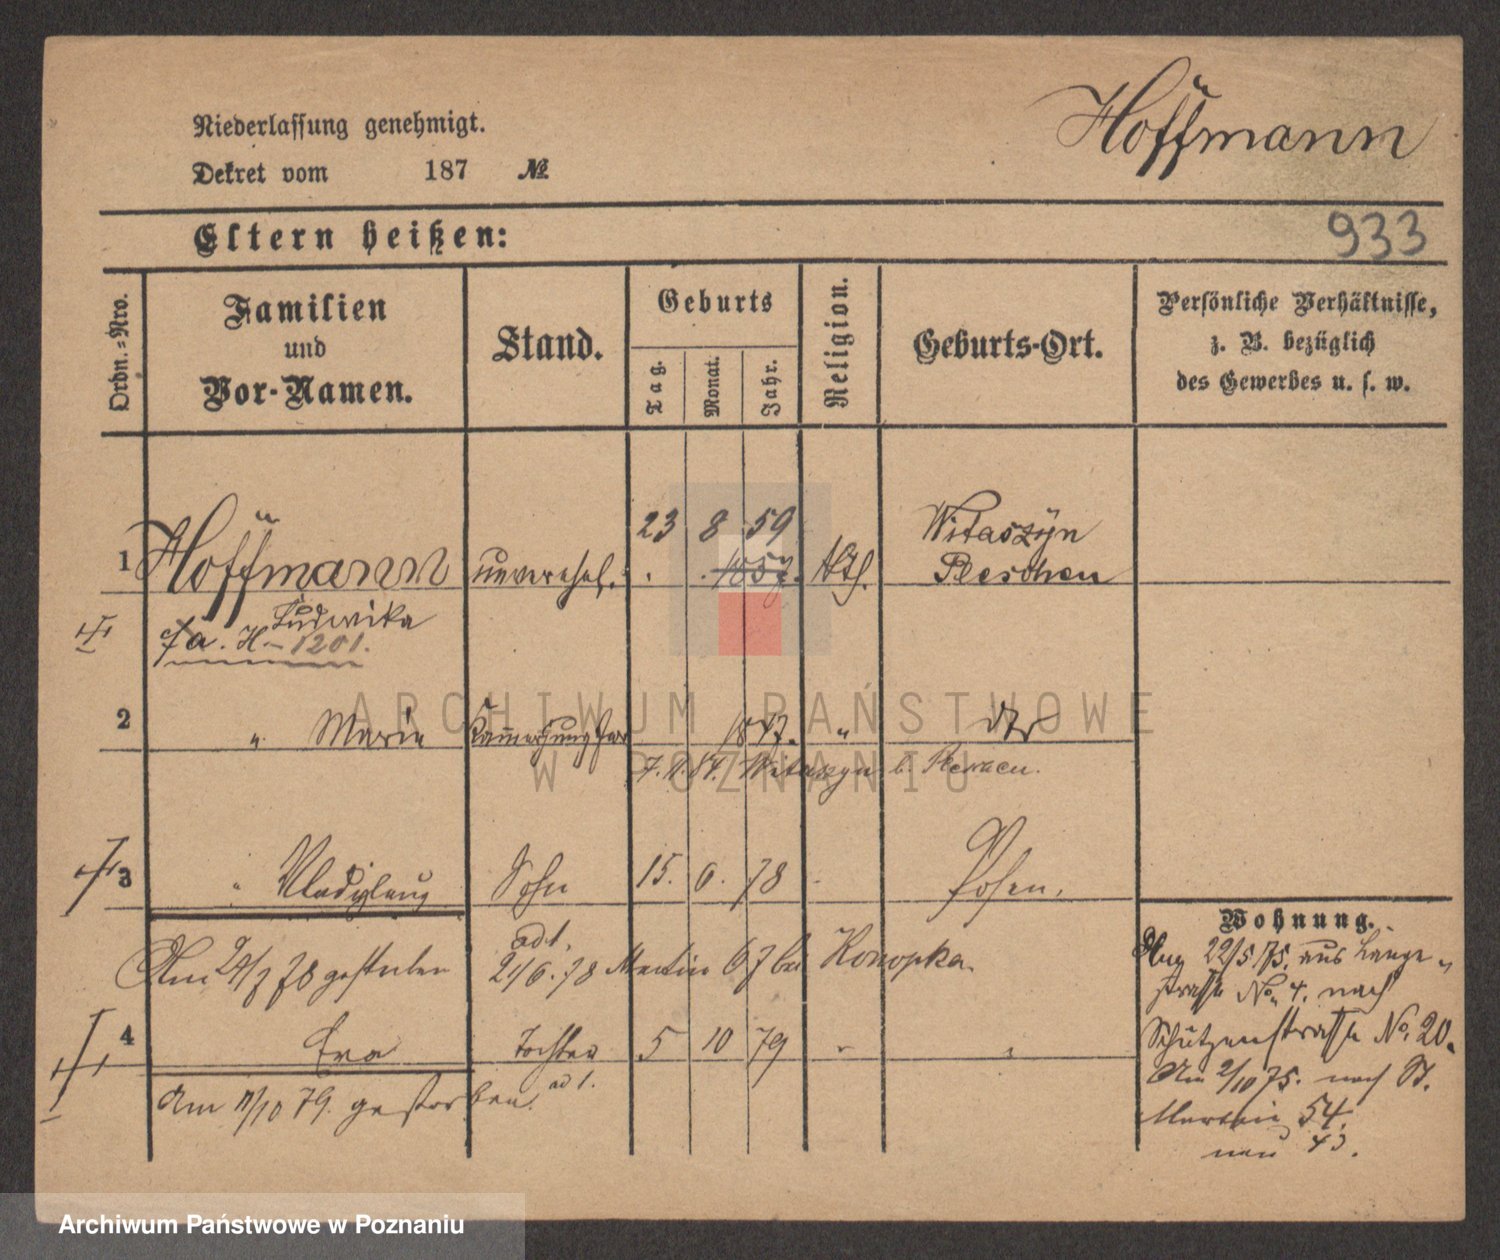 Hoffmann
Niederlassung genehmigt.
Dekret vom 187 №
Eltern heißen:
933
Ordn.=Nro.
Familien
und
Vor-Namen.
Stand.
Geburts
Tag.
Monat.
Jahr.
Religion.
Geburts-Ort.
Persönliche Verhältnisse,
z. B. bezüglich
des Gewerbes u. s. w.
23 8 59 Witaszyn
1 Hoffmann unverehel. 1857. kth. Pleschen
Ludwika
cfa. H-1201.
2 " Marie " dto
7. 54. Witaszyn b.
3 " Wladyslaus Sohn 15. 6. 78 Posen.
Am 24/7 78 gestorben
ad 1.
21/6. 78 Martin 67 bei Konopka.
4 Eva Tochter 5 10 79 " "
Am 11/10 79. gestorben. ad 1.
Wohnung.
22/5 75. aus Lange-
strasse No. 4. nach
Schützenstrasse No. 20.
Am 2/10 75. nach St.
Martin 54.
neu 43.
ARCHIWUM PAŃSTWOWE
W POZNANIU
Archiwum Państwowe w Poznaniu